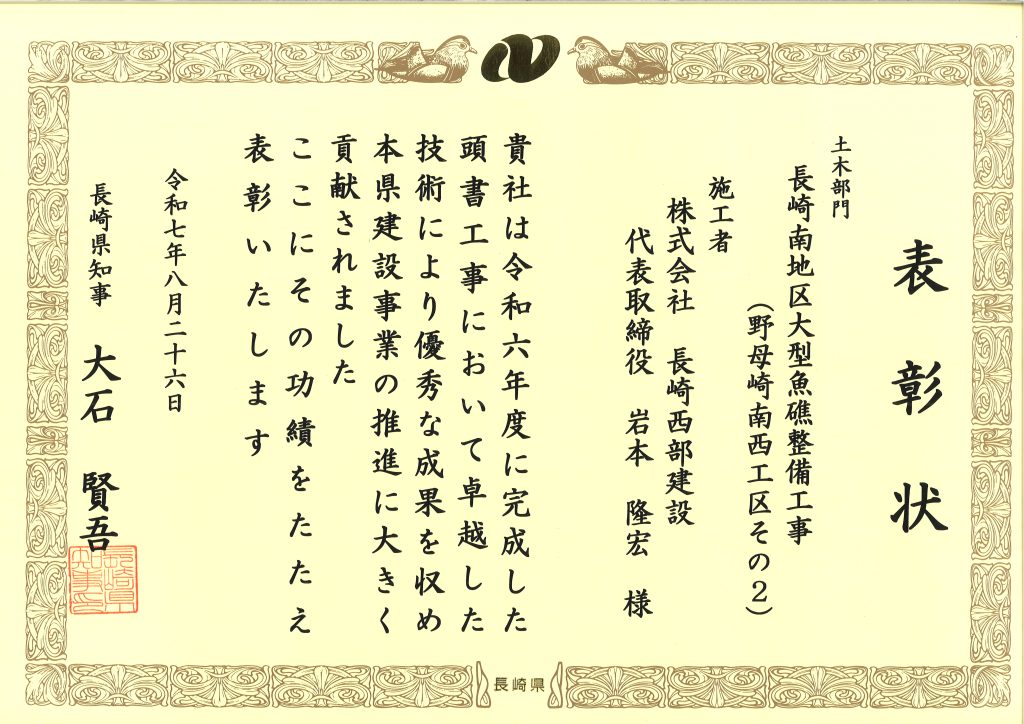 表彰状
土木部門
長崎南地区大型魚礁整備工事
（野母崎南西工区その２）
施工者
株式会社　長崎西部建設
代表取締役　岩本　隆宏　様
貴社は令和六年度に完成した
頭書工事において卓越した
技術により優秀な成果を収め
本県建設事業の推進に大きく
貢献されました
ここにその功績をたたえ
表彰いたします
令和七年八月二十六日
長崎県知事　大石　賢吾
長崎県知事之印
長崎県